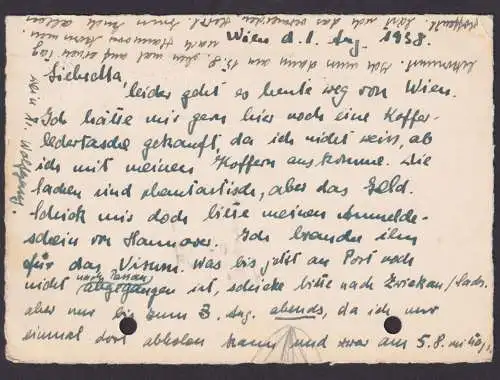 Wien d. 1. Aug. 1938.
leider geht es heute weg von Wien.
Ich hätte mir gern hier noch eine Koffer-
ledertasche gekauft, da ich nicht weiss, ob
ich mit meinen Koffern auskomme. Die
Sachen sind phantastisch, aber das Geld.
Schick mir doch bitte meinen Anmelde-
schein von Hannover. Ich brauche ihn
für das Visum. Was bis jetzt an Post noch
nicht nach Passau abgegangen ist, schicke bitte nach Zwickau/Sachs.
aber nur bis zum 3. Aug. abends, da ich nur
einmal dort abholen kann und zwar am 5.8. mittag,
ab 13.8. mal auf einen Tag
nach Hannover kommen.
Wolfgang.